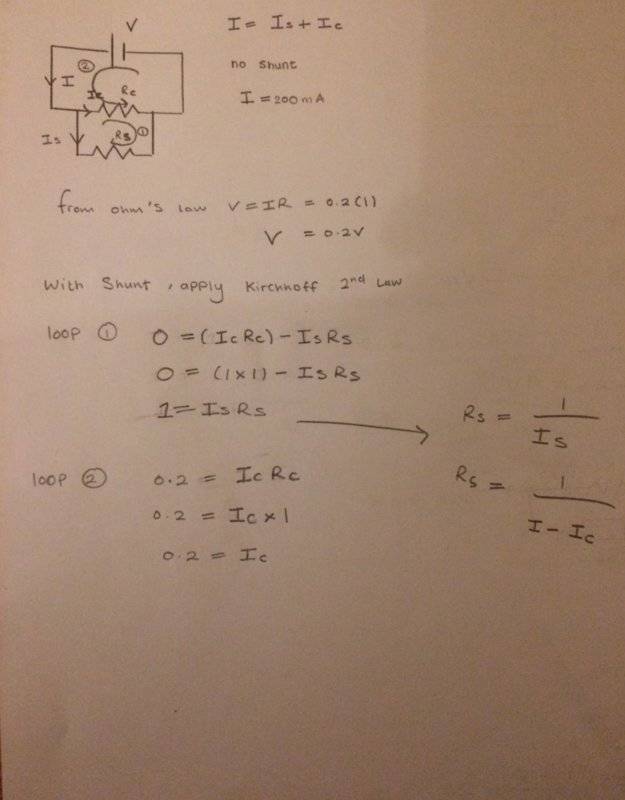 V
I = Is + Ic
②
I
Ic
Rc
no shunt
I = 200mA
Is
Rs
①
from ohm's law V = IR = 0.2(1)
V = 0.2V
With Shunt, apply Kirchhoff 2nd Law
loop ① 0 = (IcRc) - IsRs
0 = (1×1) - IsRs
1 = IsRs
Rs = 1/Is
loop ② 0.2 = IcRc
Rs = 1/(I - Ic)
0.2 = Ic × 1
0.2 = Ic